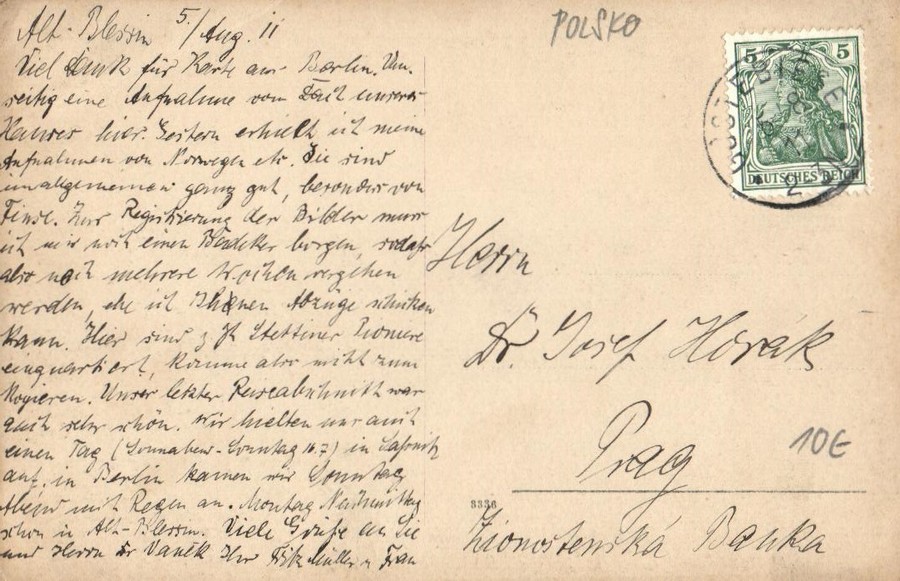 Alt-Blessin 5./Aug. 11
Viel Dank für Karte aus Berlin. Um-
seitig eine Aufnahme vom unseres
Hauses hier. Gestern erhielt ich meine
Aufnahmen von Norwegen etc. Sie sind
im allgemeinen ganz gut, besonders von
Finse. Zur Registrierung der Bilder muss
ich mir noch einen Bädeker borgen, sodaß
also noch mehrere Wochen vergehen
werden, ehe ich Ihnen Abzüge schicken
kann. Hier sind z. Zt. Stettiner Pioniere
einquartiert, komme also nicht zum
Kopieren. Unser letzter Reiseabschnitt war
auch sehr schön. Wir hielten uns auch
einen Tag (Sonnabend-Sonntag 16.7) in Saßnitz
auf, in Berlin kamen wir Sonntag
Abend mit Regen an. Montag Nachmittag
schon in Alt-Blessin. Viele Grüße an Sie
und Herrn Dr Vaněk Ihr Fritz Müller u Frau
POLSKO
5 5
DEUTSCHES REICH
Herrn
Dr. Josef Horák
Prag
10€
3336
Živnostenská Banka